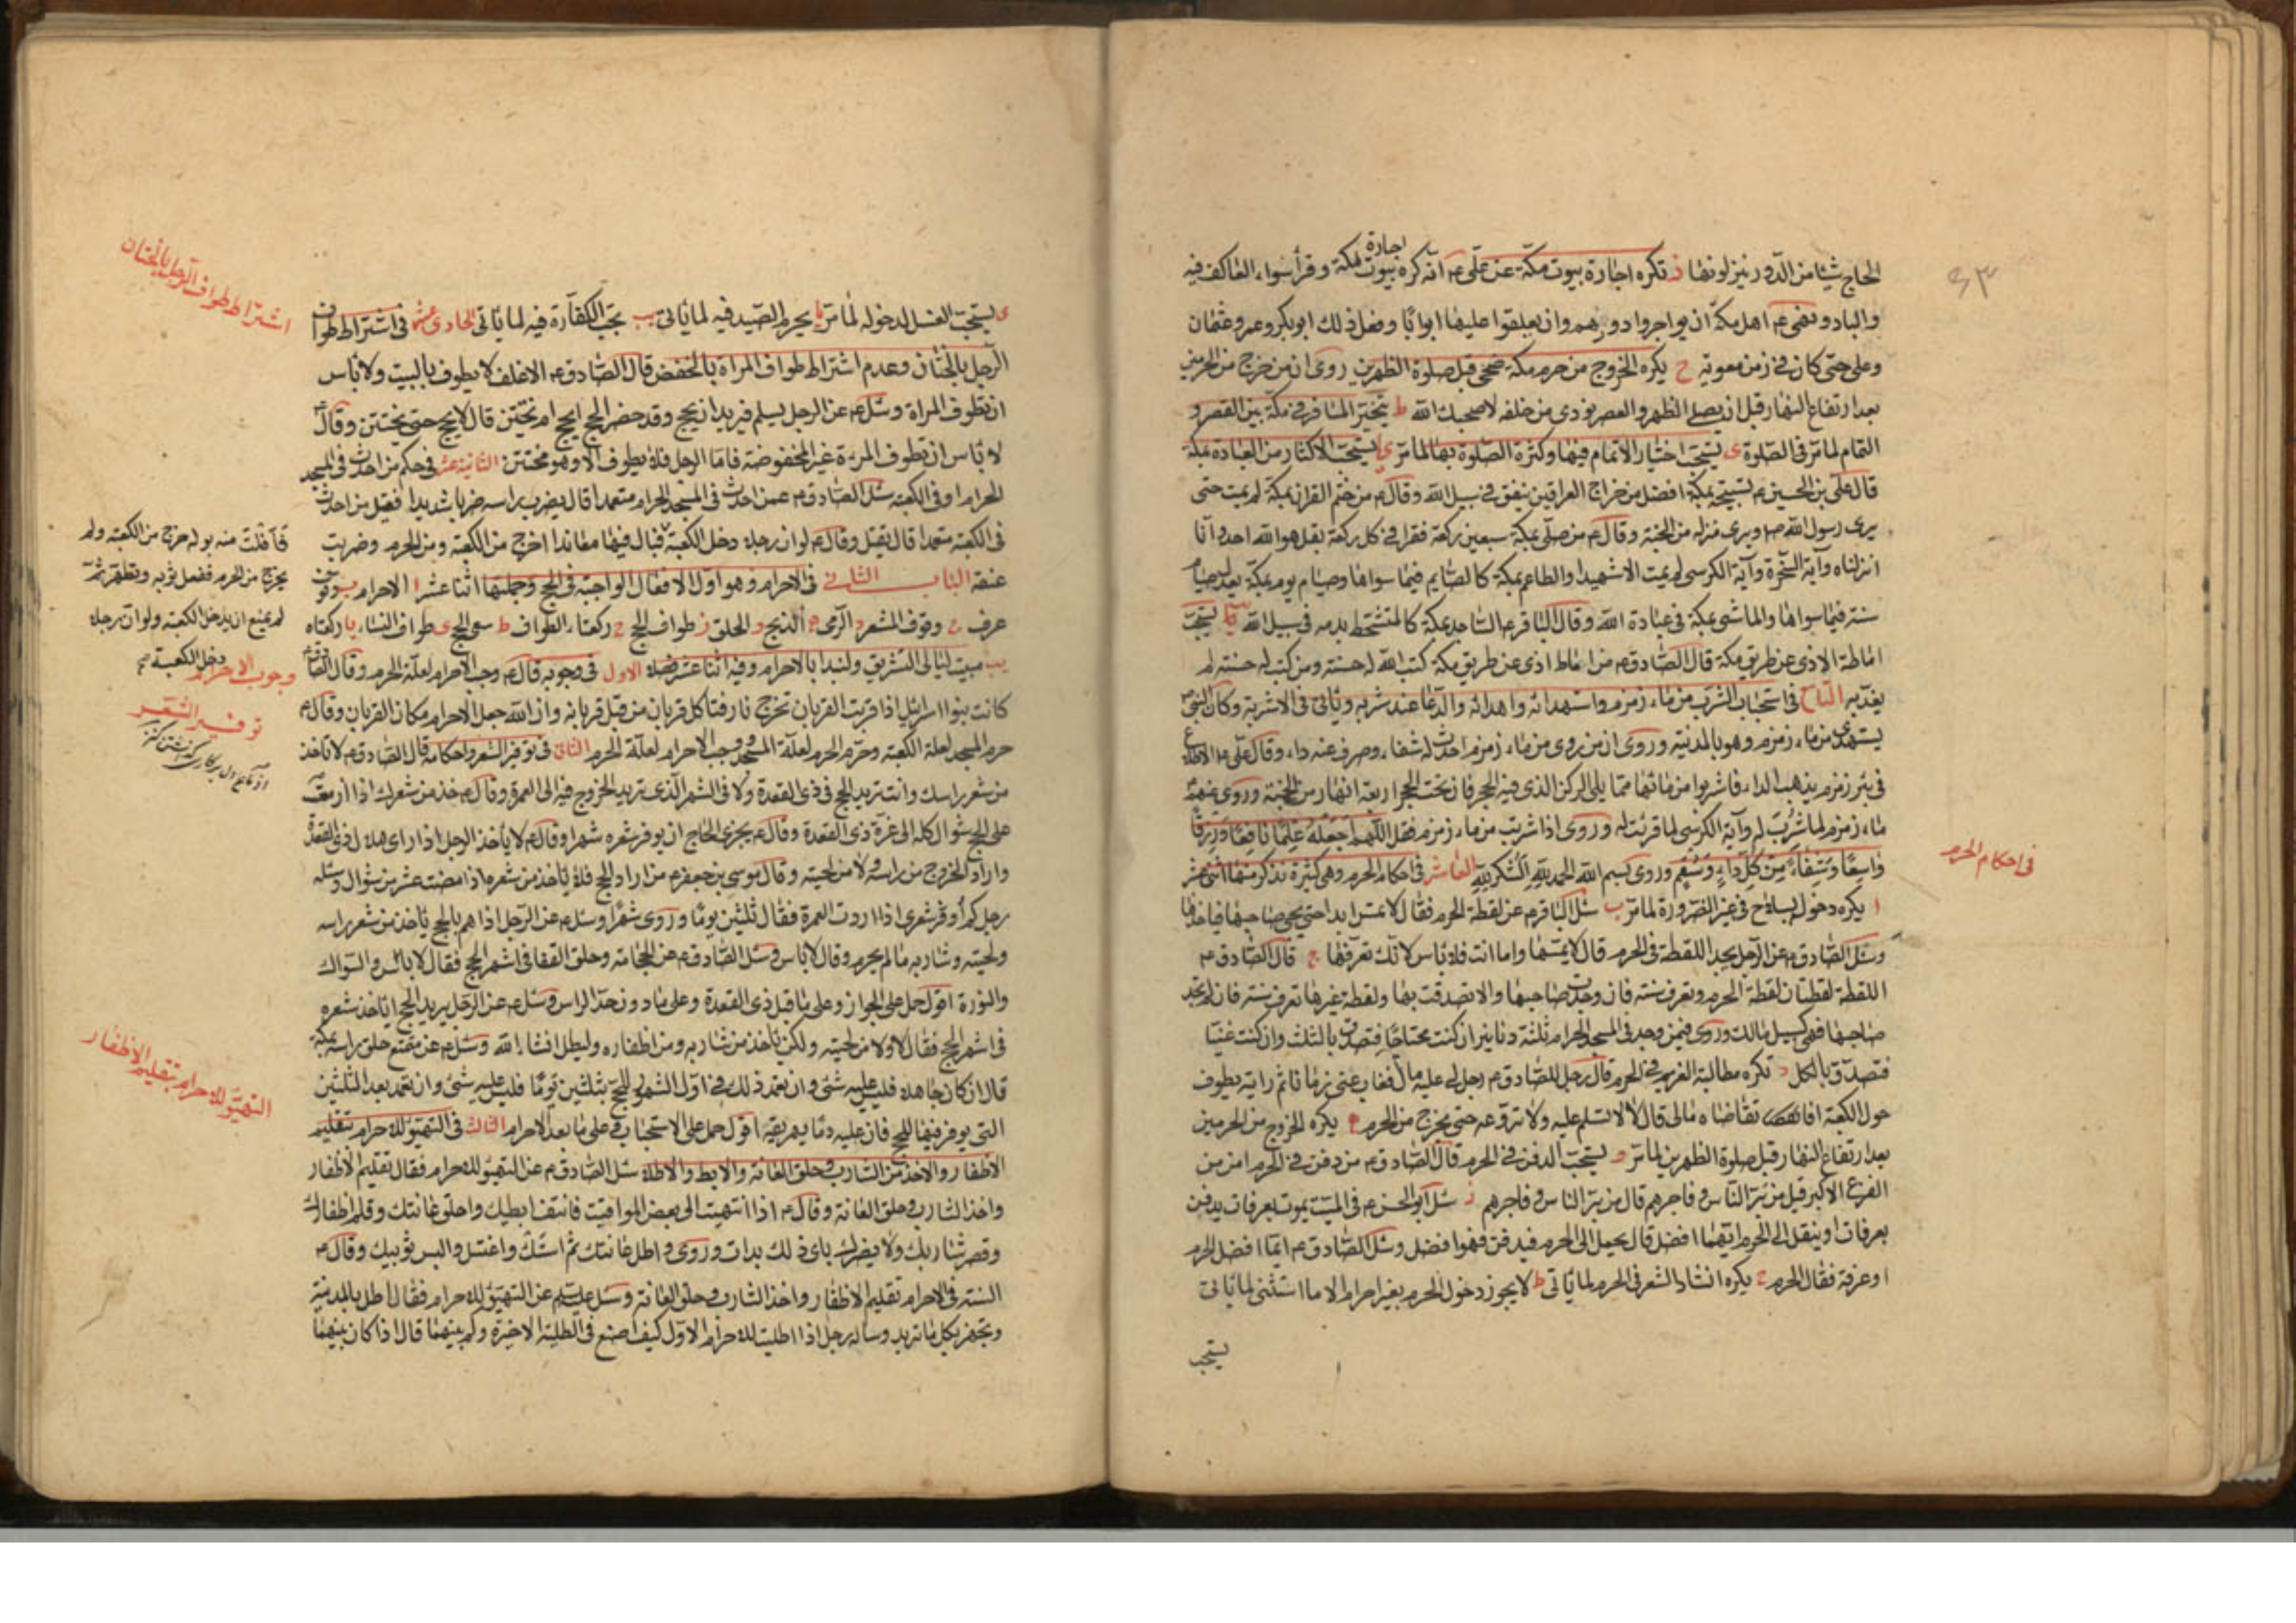 الحاج شيئا من الدور ينزلونها ز تكره اجارة بيوت مكة عن علي ع انه كره اجارة بيوت مكة وقرأ سواء العاكف فيه
والباد ونهى ع اهل مكة ان يواجروا دورهم وان يعلقوا عليها ابوابا وفعل ذلك ابوبكر وعمر وعثمان
وعلى حتى كان في زمن معوية ح يكره الخروج من حرم مكة ضحى قبل صلوة الظهرين روى ان من خرج من الحرمين
بعد ارتفاع النهار قبل ان يصلي الظهر والعصر نودى من خلفه لا صحبك الله ط يتخير المسافر في مكة بين القصر و
التمام لما مر في الصلوة ى يستحب اختيار الاتمام فيها وكثرة الصلوة بها لما مر يا يستحب الاكثار من العبادة بمكة
قال علي بن الحسين ع تسبيحة بمكة افضل من خراج العراقين ينفق في سبيل الله وقال ع من ختم القران بمكة لم يمت حتى
يرى رسول الله ص ويرى منزله من الجنة وقال ع من صلى بمكة سبعين ركعة فقرا في كل ركعة بقل هو الله احد وانا
انزلناه وآية السخرة وآية الكرسى لم يمت الا شهيدا والطاعم بمكة كالصايم فيما سواها وصيام يوم بمكة يعدل صيام
سنة فيما سواها والماشى بمكة في عبادة الله وقال الباقر ع الساجد بمكة كالمتشحط بدمه في سبيل الله يب يستحب
اماطة الاذى عن طريق مكة قال الصادق ع من اماط اذى عن طريق مكة كتب الله له حسنة ومن كتب له حسنة لم
يعذبه التاسع في استحباب الشرب من ماء زمزم واستهدائه واهدائه والدعا عند شربه وياتى في الاشربة وكان النبي ص
يستهدى من ماء زمزم وهو بالمدينة وروى ان من روى من ماء زمزم احدث له شفاء وصرف عنه داء وقال علي ع الاطلاع
في بئر زمزم يذهب الداء فاشربوا من مائها مما يلى الركن الذى فيه الحجر فان تحت الحجر اربعة انهار من الجنة وروى عنهم
ماء زمزم لما شرب له وآية الكرسى لما قرئت له وروى اذا شربت من ماء زمزم فقل اللهم اجعله علما نافعا ورزقا
واسعا وشفاء من كل داء وسقم وروى بسم الله الحمد لله الشكر لله العاشر في احكام الحرم وهي كثيرة نذكر منها اثنى عشر
ا يكره دخوله بسلاح في غير الضرورة لما مر ب سئل الباقر ع عن لقطة الحرم فقال لا تمس ابدا حتى يجى صاحبها فياخذها
وسئل الصادق ع عن الرجل يجد اللقطة في الحرم قال لا يمسها واما انت فلا باس لانك تعرفها ج قال الصادق ع
اللقطة لقطتان لقطة الحرم وتعرف سنة فان وجدت صاحبها والا تصدقت بها ولقطة غيرها تعرف سنة فان لم تجد
صاحبها فهى كسبيل مالك وروى فيمن وجد في المسجد الحرام ثلثة دنانير ان كنت محتاجا فتصدق بالثلث وان كنت غنيا
فتصدق بالكل د تكره مطالبة الغريم في الحرم قال رجل للصادق ع رجل لي عليه مال فغاب عنى زمانا ثم رايته يطوف
حول الكعبة افاتقاضاه مالى قال لا لا تسلم عليه ولا تروعه حتى يخرج من الحرم ه يكره الخروج من الحرمين
بعد ارتفاع النهار قبل صلوة الظهرين لما مر و يستحب الدفن في الحرم قال الصادق ع من دفن في الحرم امن من
الفزع الاكبر قيل من بر الناس وفاجرهم قال من بر الناس وفاجرهم ز سئل ابو الحسن ع في الميت يموت بعرفات يدفن
بعرفات او ينقل الى الحرم ايهما افضل قال يحمل الى الحرم فيدفن فهو افضل وسئل الصادق ع ايما افضل الحرم
او عرفة فقال الحرم ح يكره انشاد الشعر في الحرم لما ياتى ط لا يجوز دخول الحرم بغير احرام الا ما استثنى لما ياتى
يستحب
في احكام الحرم
ى يستحب الغسل لدخوله لما مر يا يحرم الصيد فيه لما ياتى يب تجب الكفارة فيه لما ياتى الحادى عشر في اشتراط طواف
الرجل بالختان وعدم اشتراط طواف المراة بالخفض قال الصادق ع الاغلف لا يطوف بالبيت ولا باس
ان تطوف المراة وسئل ع عن الرجل يسلم فيريد ان يحج وقد حضر الحج ايحج ام يختتن قال لا يحج حتى يختتن وقال ع
لا باس ان تطوف المرءة غير المخفوضة فاما الرجل فلا يطوف الا وهو مختتن الثانى عشر في حكم من احدث في المسجد
الحرام او في الكعبة سئل الصادق ع عمن احدث في المسجد الحرام متعمدا قال يضرب براسه ضربا شديدا فقيل من احدث
في الكعبة متعمدا قال يقتل وقال ع لو ان رجلا دخل الكعبة فبال فيها معاندا اخرج من الكعبة ومن الحرم وضربت
عنقه الباب الثانى في الاحرام وهو اول الافعال الواجبة في الحج وجملتها اثنا عشر ا الاحرام ب وقوف
عرفة ج وقوف المشعر د الرمى ه الذبح و الحلق ز طواف الحج ح ركعتاه الطواف ط سعى الحج ى طواف النساء يا ركعتاه
يب مبيت ليالى التشريق ولنبدا بالاحرام وفيه اثنا عشر فصلا الاول في وجوبه قال ع وجب الاحرام لعلة الحرم وقال الصادق ع
كانت بنوا اسرائيل اذا قربت القربان تخرج نار فتاكل قربان من قبل قربانه وان الله جعل الاحرام مكان القربان وقال ع
حرم المسجد لعلة الكعبة وحرم الحرم لعلة المسجد ووجب الاحرام لعلة الحرم الثانى في توفير الشعر واحكامه قال الصادق ع لا تاخذ
من شعر راسك وانت تريد الحج في ذى القعدة ولا في الشهر الذى تريد الخروج فيه الى العمرة وقال ع خذ من شعرك اذا ازمعت
على الحج شوال كله الى غرة ذى القعدة وقال ع يجزى الحاج ان يوفر شعره شهرا وقال ع لا ياخذ الرجل اذا راى هلال ذى القعدة
واراد الخروج من راسه ولا من لحيته وقال موسى بن جعفر ع من اراد الحج فلا ياخذ من شعره اذا مضت عشر من شوال وسئله
رجل كم اوفر شعرى اذا اردت العمرة فقال ثلثين يوما وروى شهرا وسئل ع عن الرجل اذا هم بالحج ياخذ من شعر راسه
ولحيته وشاربه ما لم يحرم وقال لا باس وسئل الصادق ع عن الحجامة وحلق القفا في اشهر الحج فقال لا باس والسواك
والنورة اقول حمل على الجواز وعلى ما قبل ذى القعدة وعلى ما دون حد الراس وسئل ع عن الرجل يريد الحج اياخذ شعره
في اشهر الحج فقال لا ولا من لحيته ولكن ياخذ من شاربه ومن اظفاره وليطل انشاء الله وسئل ع عن متمتع حلق راسه بمكة
قال ان كان جاهلا فليس عليه شئ وان تعمد ذلك في اول الشهور للحج بثلثين يوما فليس عليه شئ وان تعمد بعد الثلثين
التى يوفر فيها للحج فان عليه دما يهريقه اقول حمل على الاستحباب وعلى ما بعد الاحرام الثالث في التهيؤ للاحرام بتقليم
الاظفار والاخذ من الشارب وحلق العانة والابط والاطلاء سئل الصادق ع عن التهيؤ للاحرام فقال تقليم الاظفار
واخذ الشارب وحلق العانة وقال ع اذا انتهيت الى بعض المواقيت فانتف ابطيك واحلق عانتك وقلم اظفارك
وقص شاربك ولا يضرك باى ذلك بدات وروى واطل عانتك ثم استك واغتسل والبس ثوبيك وقال ع
السنة في الاحرام تقليم الاظفار واخذ الشارب وحلق العانة وسئل ع عن التهيؤ للاحرام فقال اطل بالمدينة
وتجهز بكل ما تريد وساله رجل اذا اطليت للاحرام الاول كيف اصنع في الطلية الاخيرة وكم بينهما قال اذا كان بينهما
اشتراط طواف الرجل بالختان
فافلت منه بوله خرج من الكعبة ولم
يخرج من الحرم فغسل ثوبه وتطهر ثم
لم يمنع ان يدخل الكعبة ولو ان رجلا
دخل الكعبة صح
وجوب الاحرام
توفير الشعر
التهيؤ للاحرام بتقليم الاظفار